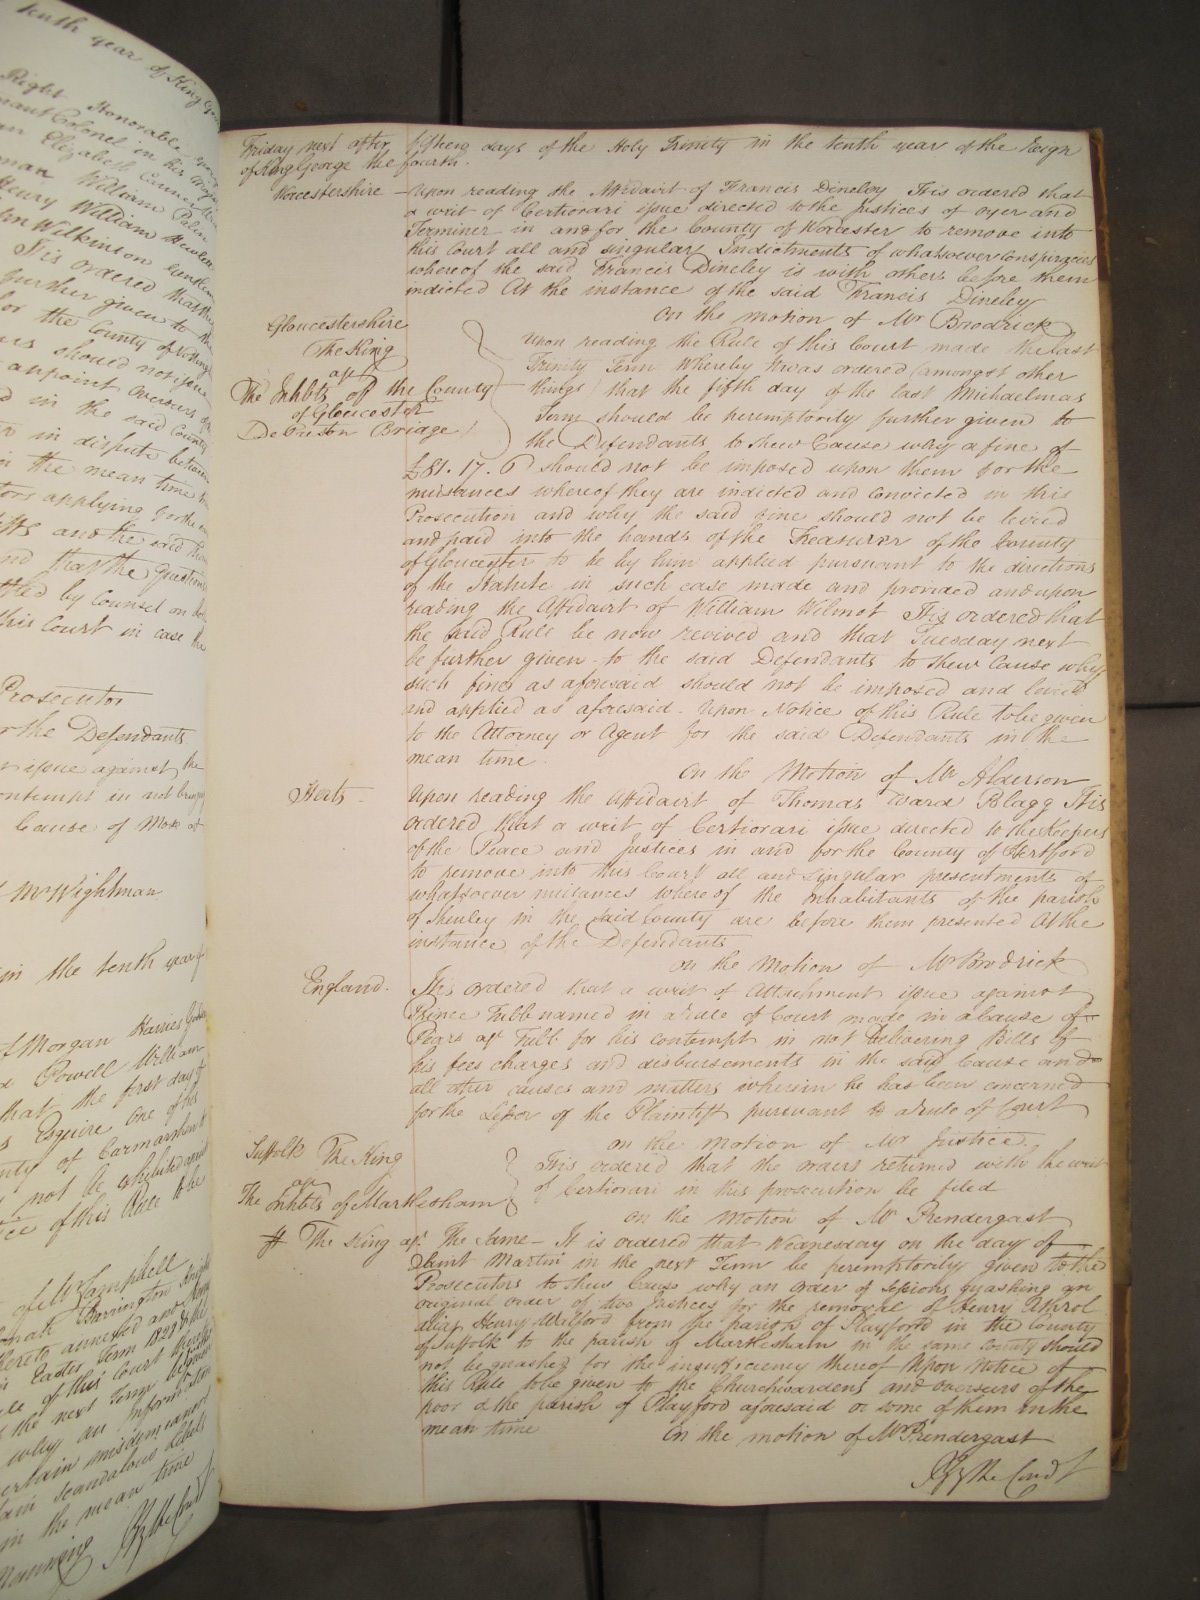 tenth year of King Geo
Right Honorable
nant Colonel in his Maj
an Elizabeth
oman William Palin
Henry William
hn Wilkinson
Tis ordered that the
further given to the
for the County of
should not issue
appoint Overseers of
d in the said County
in dispute between
in the mean time
tors applying for the
and the said
and that the Question
ttled by Counsel on
this Court in case the
Prosecutor
r the Defendants
issue against the
ontempt in not
Cause of Moss agt
Mr Wightman
in the tenth year of
Morgan Harries
Powell William
that the first day of
s Esquire one of his
nty of Carmarthen
not be exhibited against
ice of this Rule to be
of Mr Campbell
Barrington
hereto annexed and
Easter Term 1829
le of this Court
the next Term
why an Information
ertain misdemeanors
tain scandalous Libels
in the mean time
Manning By the Court
Friday next after fifteen days of the Holy Trinity in the tenth year of the Reign
of King George the fourth.
Worcestershire – Upon reading the Affidavit of Francis Dineley It is ordered that
a writ of Certiorari issue directed to the Justices of oyer and
Terminer in and for the County of Worcester to remove into
this Court all and singular Indictments of whatsoever conspiracies
whereof the said Francis Dineley is with others before them
indicted At the instance of the said Francis Dineley
On the motion of Mr Brodrick
Gloucestershire
The King
agt
The Inhbts of the County
of Gloucester
De Bridge
Upon reading the Rule of this Court made the last
Trinity Term Whereby it was ordered (amongst other
things) that the fifth day of the last Michaelmas
Term should be peremptorily further given to
the Defendants to shew Cause why a fine of
£81. 17. should not be imposed upon them for the
nuisances whereof they are indicted and convicted in this
Prosecution and why the said fine should not be levied
and paid into the hands of the Treasurer of the County
of Gloucester to be by him applied pursuant to the directions
of the Statute in such case made and provided and upon
reading the Affidavit of William Wilmot It is ordered that
the said Rule be now revived and that Tuesday next
be further given to the said Defendants to shew Cause why
such fines as aforesaid should not be imposed and levied
and applied as aforesaid. Upon Notice of this Rule to be given
to the Attorney or Agent for the said Defendants in the
mean time.
On the Motion of Mr Alderson
Herts. Upon reading the Affidavit of Thomas Ward Blagg It is
ordered that a writ of Certiorari issue directed to the Keepers
of the Peace and Justices in and for the County of Hertford
to remove into this Court all and singular presentments of
whatsoever nuisances whereof the Inhabitants of the parish
of Shenley in the said County are before them presented At the
instance of the Defendants
On the Motion of Mr Brodrick
England. It is ordered that a writ of Attachment issue against
Prince Tubb named in a rule of Court made in a Cause of
Pears agt Tubb for his contempt in not delivering Bills of
his fees charges and disbursements in the said Cause and
all other causes and matters wherein he has been concerned
for the Lessor of the Plaintiff pursuant to a rule of Court
On the motion of Mr Justice.
Suffolk The King
agt
The Inhbts of Martlesham
It is ordered that the orders returned with the writ
of Certiorari in this prosecution be filed
On the Motion of Mr Prendergast
The King agt The Same – It is ordered that Wednesday on the day of
Saint Martin in the next Term be peremptorily given to the
Prosecutors to shew Cause why an order of Sessions quashing an
original order of two Justices for the removal of Henry Athrol
alias Henry Wilford from the parish of Playford in the County
of Suffolk to the parish of Martlesham in the same County should
not be quashed for the insufficiency thereof Upon Notice of
this Rule to be given to the Churchwardens and overseers of the
poor of the parish of Playford aforesaid or some of them in the
mean time On the motion of Mr Prendergast
By the Court